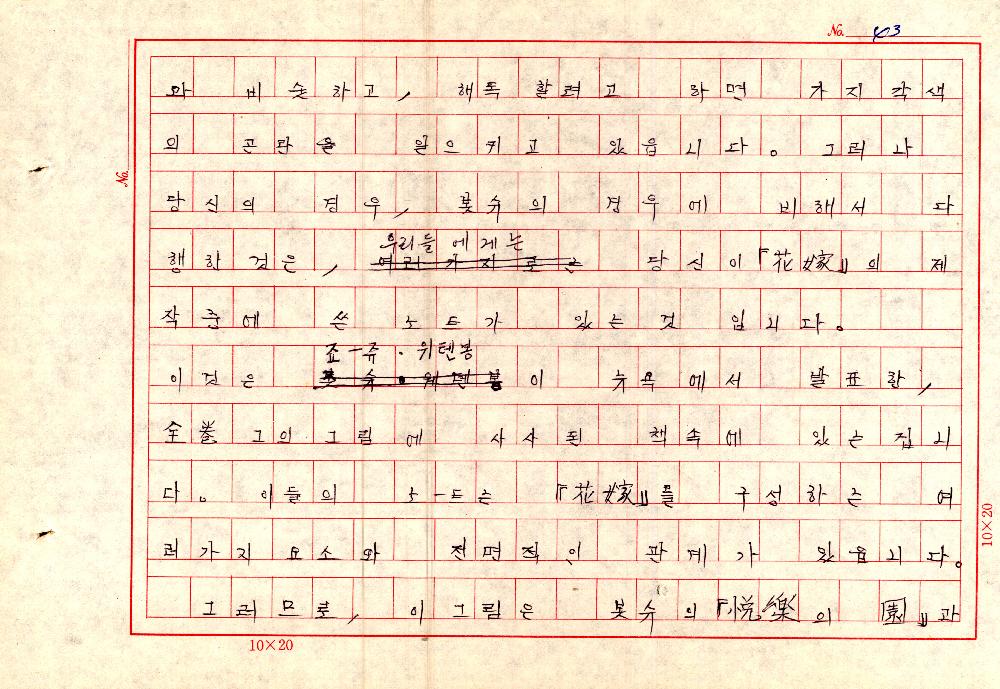 No. 43
와 비슷하고, 해독 할려고 하면 가지각색
의 곤란을 일으키고 있읍니다. 그러나
No.
당신의 경우, 봇슈의 경우에 비해서 다
우리들에게는
행한것은, 여러가지로는 당신이『花嫁』의 제
작중에 쓴 노트가 있는것 입니다.
죠ー쥬·위텐봉
이것은 봇슈·위텐봉이 뉴욕에서 발표한,
全巻 그의 그림에 사사된 책속에 있는 집니
다. 이들의 노ー트는『花嫁』를 구성하는 여
러가지 요소와 전면적인 관계가 있읍니다.
그러므로, 이그림은 봇슈의『悦樂의 園』과
10×20
10×20